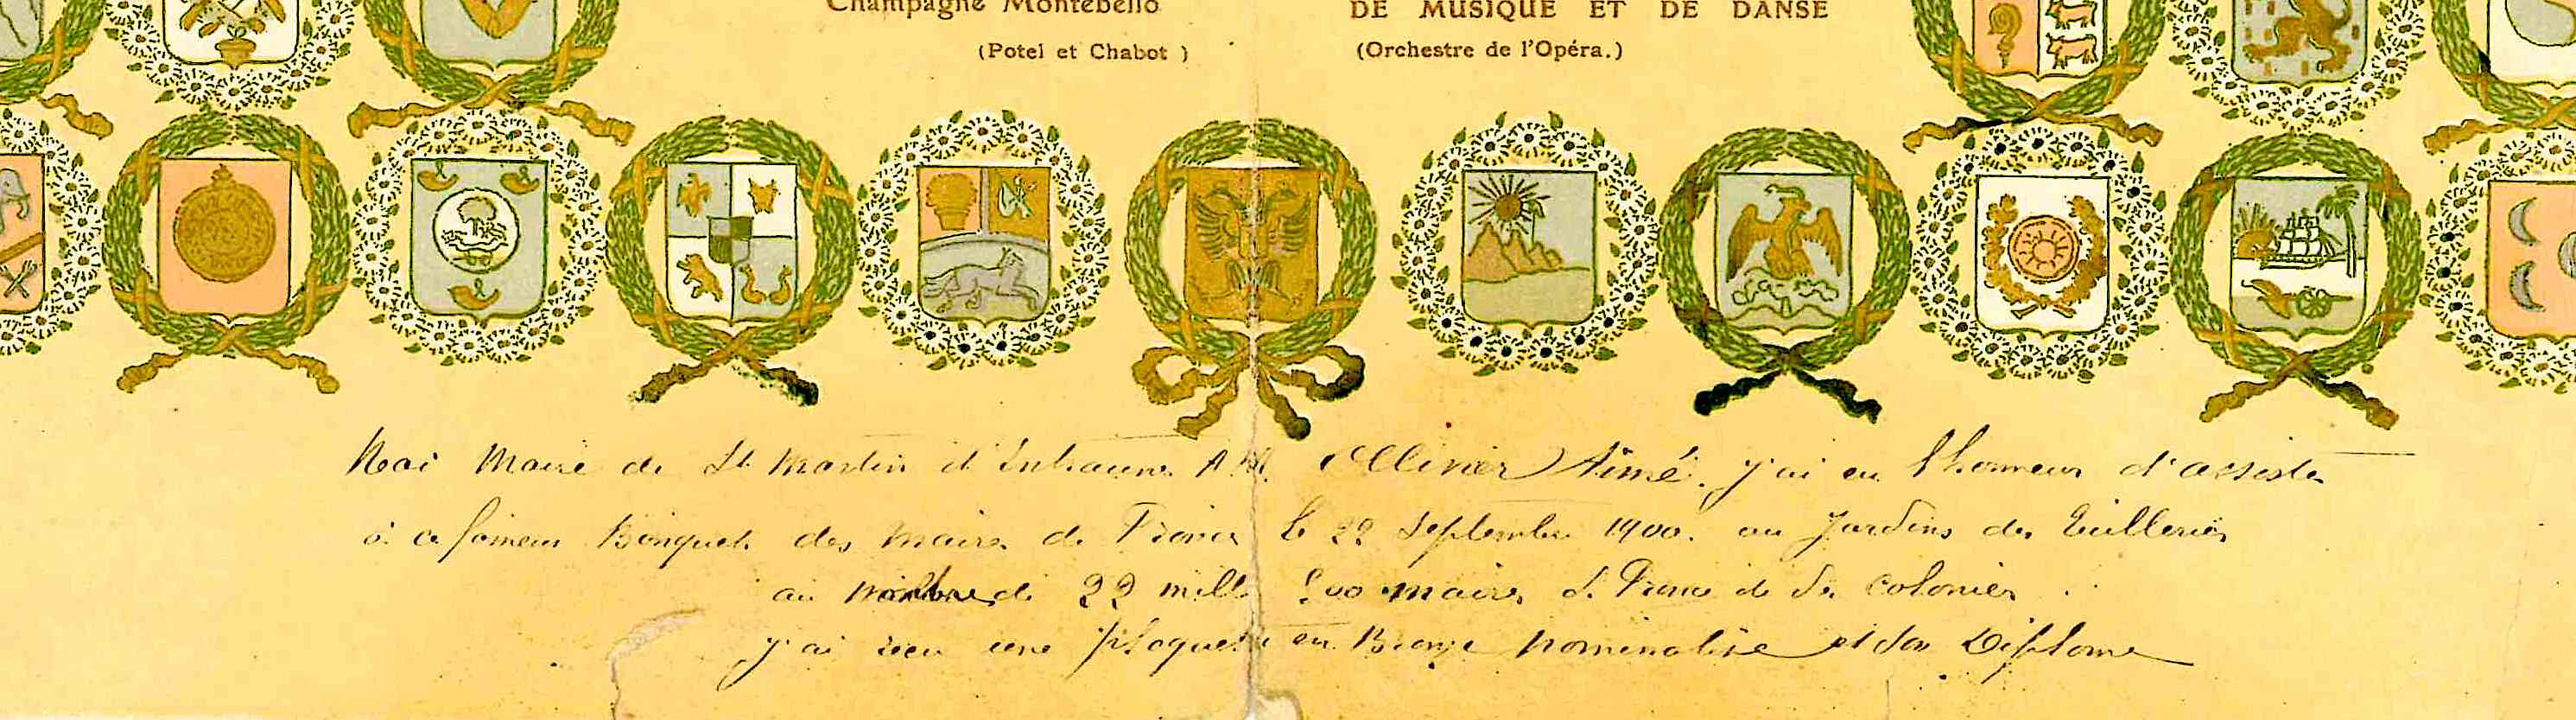 Champagne Montebello
DE MUSIQUE ET DE DANSE
(Potel et Chabot)
(Orchestre de l'Opéra.)
Moi Maire de St Martin d'Entraunes A.M. Ollivier Aimé. J'ai eu l'honneur d'assister
à ce fameux Banquet des Maires de France le 22 Septembre 1900. au Jardins des Tuilleries
au nombre de 22 mille 500 maires de France et de Ses Colonies
J'ai reçu une Plaquette en Bronze nominative et son Diplome